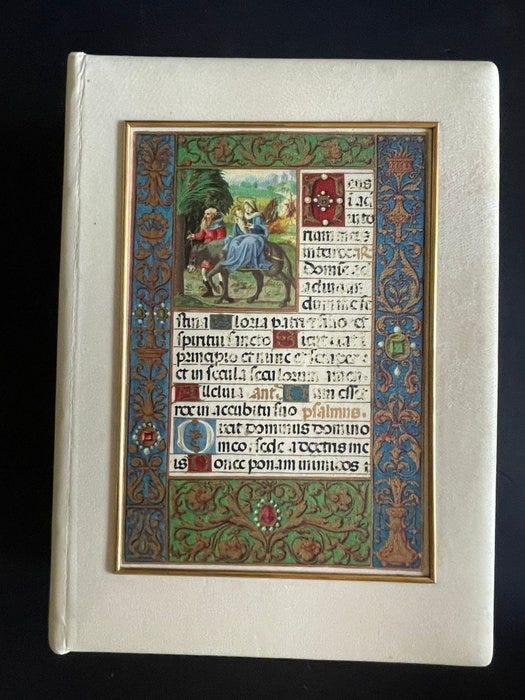 Deus
i ad
iuto
intende
Domine ad
adiuuan
dum me fe
stina Gloria patri filio et
spiritui sancto Sicut erat i
principio et nunc et semper
et in secula seculorum amen
Alleluia ant. Dum esset
rex in accubitu suo psalmus.
Dixit dominus domino
meo sede a dextris me
is Donec ponam inimicos t